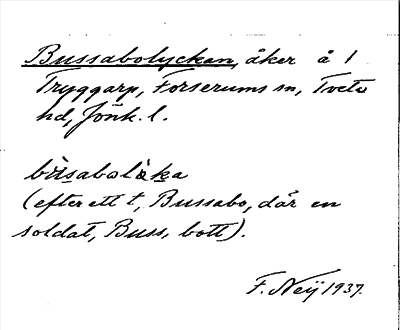 Bussabolyckan, åker å 1
Tryggarp, Forserums sn, Tveta
hd, Jönk. l.
bùsabolỳka
(efter ett t, Bussabo, där en
soldat, Buss, bott).
F. Neij 1937.